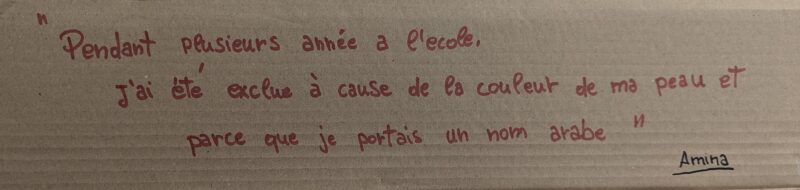 " Pendant plusieurs année a l'ecole.
J'ai été exclue à cause de la couleur de ma peau et
parce que je portais un nom arabe "
Amina